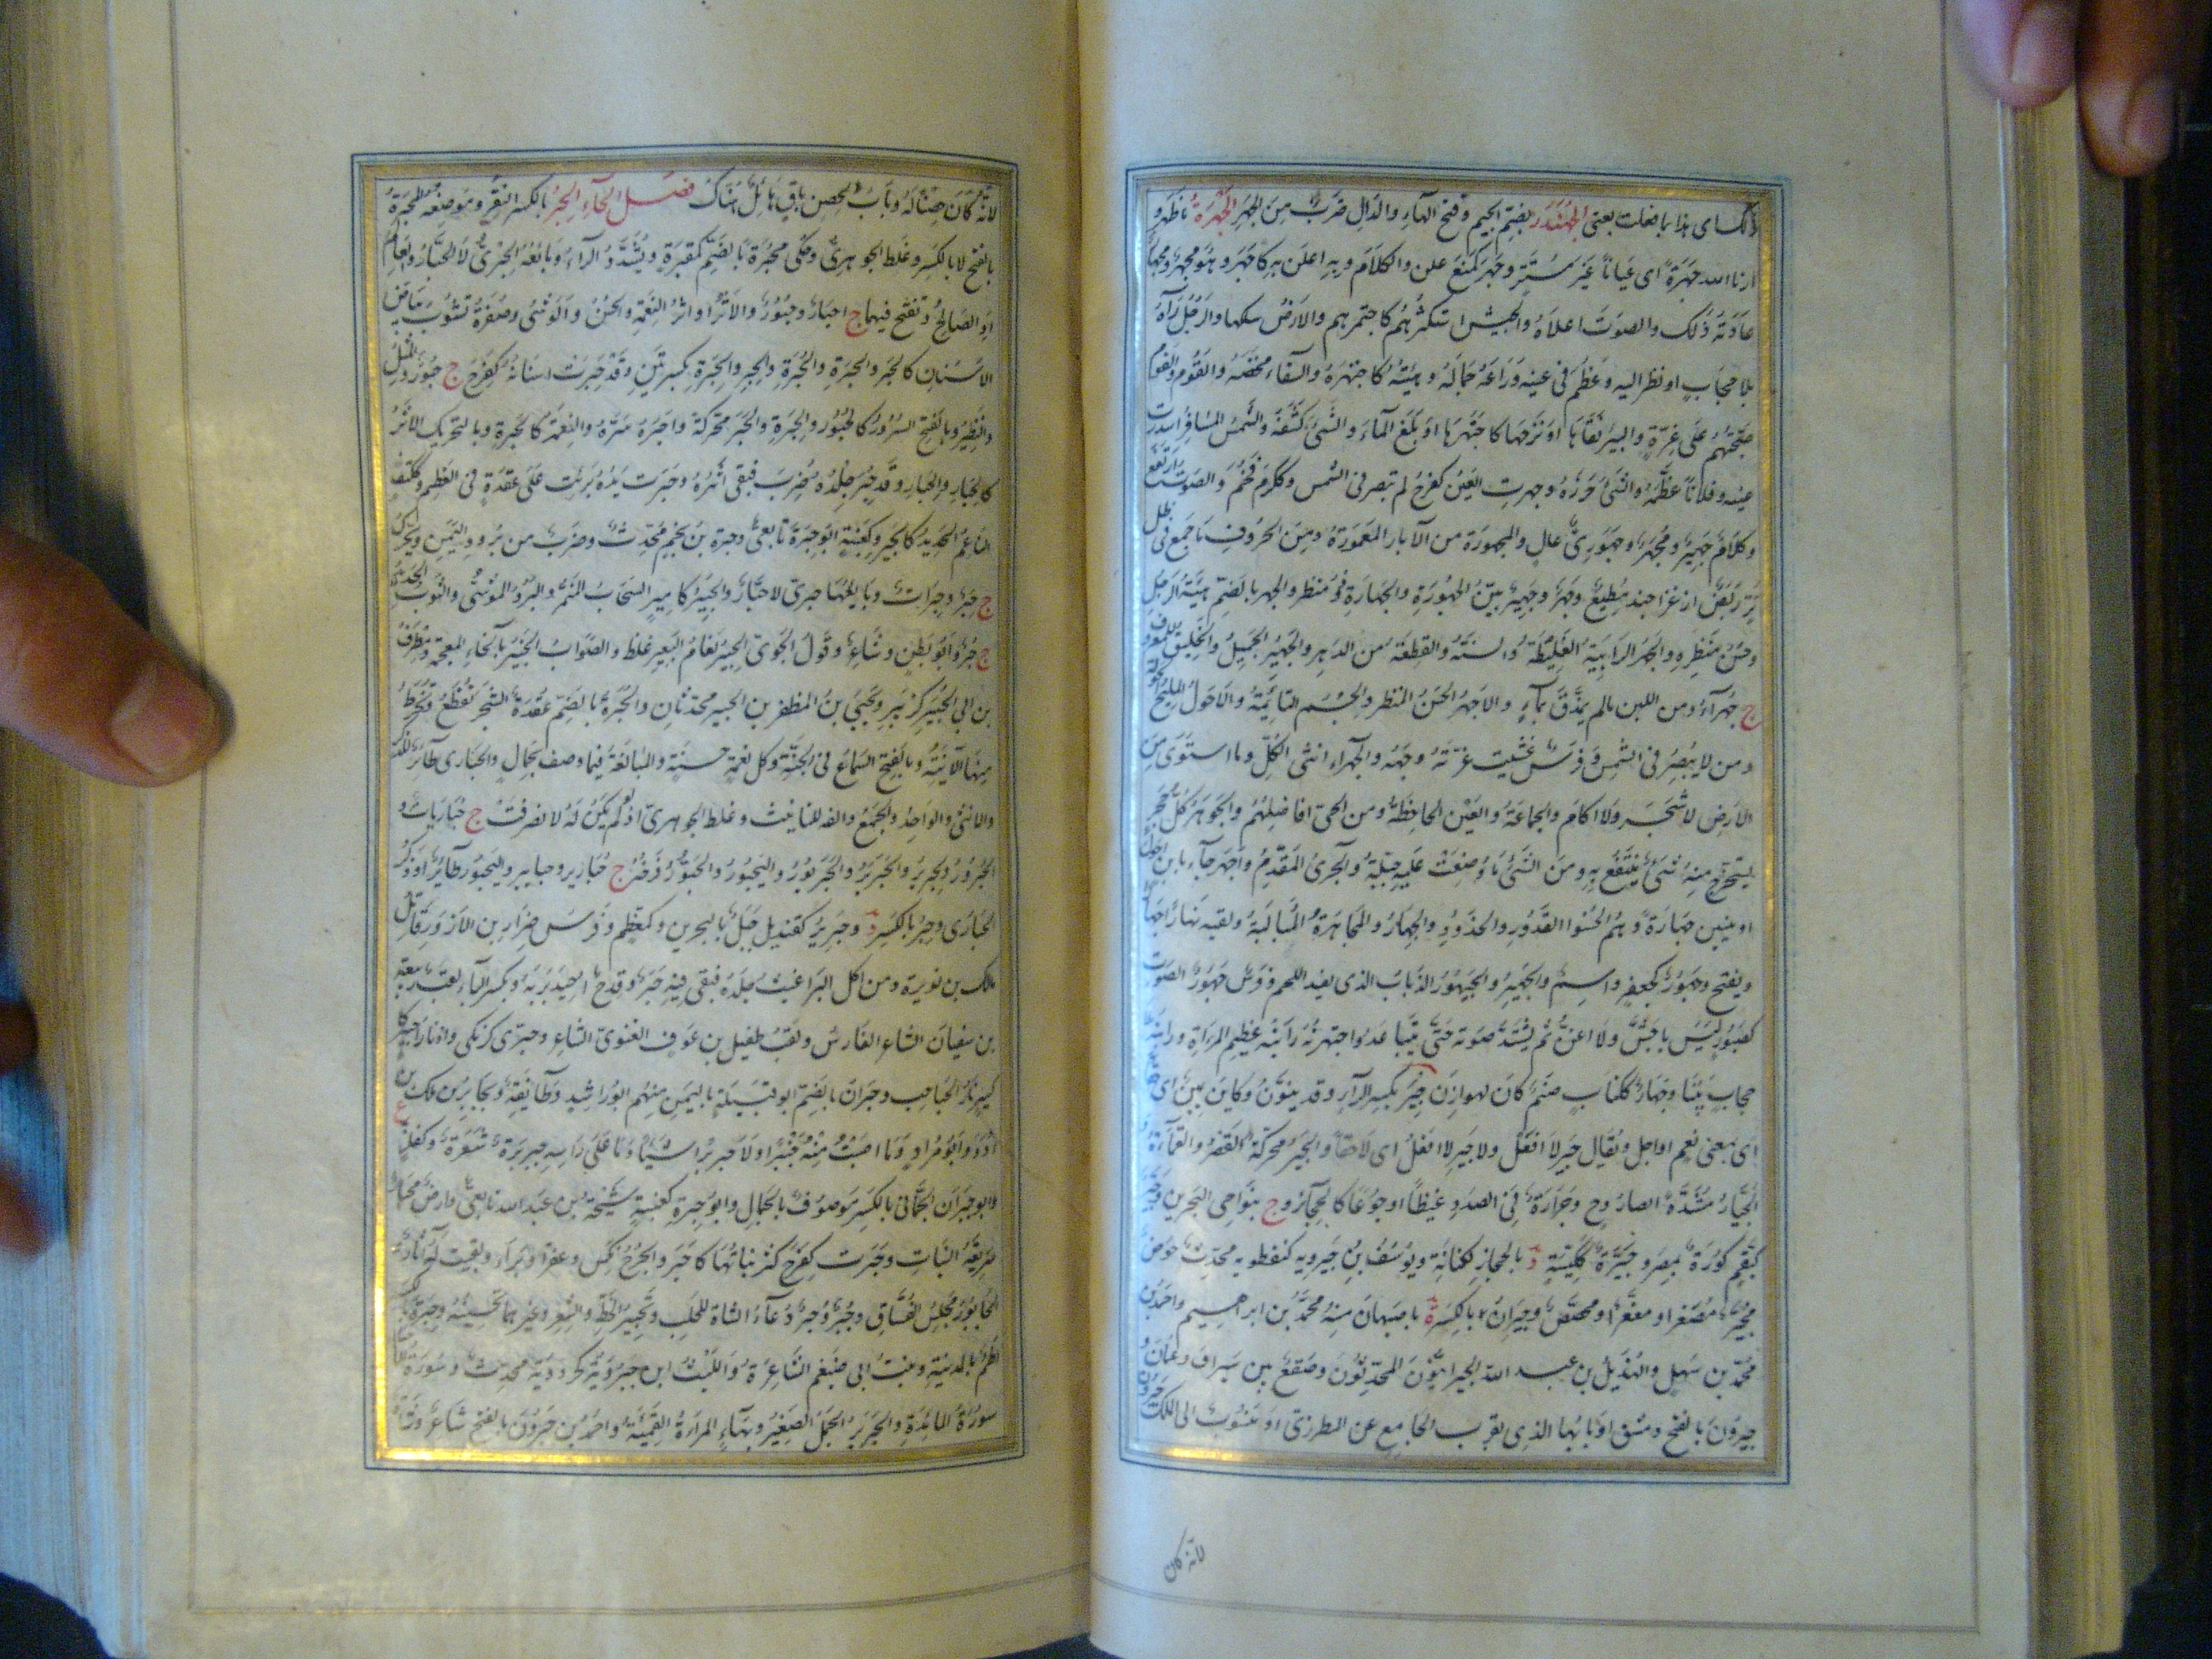 ای هذا بما فعلت بعنى الجُهَنْدَرُ بضم الجيم وفتح الهاء والدال ضَرْبٌ مِنَ التمر الجَهْرَةُ مَا ظَهَرَ و
ارنا الله جَهْرَةً اى عَيَاناً غَيْرَ مُسْتَتِرٍ وجَهَرَ كمَنَعَ علن والكَلَامَ وبِهِ اعلن بِهِ كاَجْهَرَ وهُوَ مِجْهَرٌ ومِجْهَارٌ
عَادَتُهُ ذٰلك والصوتَ اعلاهُ والجيشَ استكثرهُم كاجتهرهم والارضَ سلكها والرَجُلَ رَآهُ
بلا حِجَابٍ او نظر اليه وعَظُمَ فى عينه ورَاعَهُ جَمَالُهُ وهَيْئَتُهُ كاجتهَرَهُ والسقاءَ مخضَهُ والقومُ القومَ
صبَّحَتْهُم عَلَى غِرَّةٍ والبئرَ نَقَّاهَا او نزحَهَا كاجتَهَرَهَا او بَلَغَ الماءَ والشَّىْءَ كَشَفَهُ والشمسُ المسافرَ اسدرت
عينه وفلاناً عظَّمَهُ والشَّىْءَ حَزَرَهُ وجهرتِ العَيْنُ كفرِحَ لم تبصر فى الشمس وككرُمَ فَخُمَ والصَوْتُ ارتفع
وكلَامٌ جَهِيرٌ ومُجْهَرٌ وجَهْوَرِىٌّ عالٍ والمجهورة من الآبار المَعْمُورَةُ ومِنَ الحروفِ مَا جُمِعَ فى ظل
قَوٍّ رَبَضٌ اذ غزا جند مُطِيعٌ وجَهِرٌ وجَهِيرٌ بَيِّنُ الجُهُورَةِ والجَهَارَةِ ذُو مَنظرٍ والجُهْرُ بالضمّ هَيْئَةُ الرَجُلِ
وحُسْنُ مَنْظَرِهِ والجَهْرُ الرَابِيَةُ الغَلِيْظَةُ والسنَةُ والقِطْعَةُ من الدَهْرِ والجَهِيرُ الجميلُ والخليقُ للمعروف
ج جُهَرَاءُ ومن اللبن ما لم يمذَق بمآءٍ والاجهرُ الحَسَنُ المنظر والجِسْم التامَّتُهُ والاَحْوَلُ المليح الحولة
ومن لا يُبْصِرُ فى الشمس وفَرَسٌ غَشِيَت غُرَّتُهُ وجهَهُ والجهراء انثى الكُلِّ وما استَوَى مِنَ
الارض لا شَجَرَ ولا اكامَ والجماعَةُ والعَيْنُ الجاحظَةُ ومن الحىّ افاضِلُهُم والجَوْهَرُ كُلُّ حجر
يستخرَج مِنهُ شَىْءٌ يُنْتَفَعُ بِهِ ومِنَ الشَىْءِ مَا وُضِعَت عَلَيه جِبِلَّتُهُ والجَرِىُّ المُقَدِّمُ واَجهَرَ جآء بابنٍ احول
او ببنين جَهَارَةً وهُم الحَسَنُوا القُدُودِ والخُدُودِ والجِهَارُ والمُجَاهَرَةُ المُغَالَبَةُ ولقيه نهاراً جِهاراً
ويفتح وجَهْوَرٌ كجعفرٍ واسِمٌ والجَيْهَر والجَيْهُور الذُبَابُ الذى يفسد اللحم وفَرَسٌ جَهْوَرُ الصَوت
كصَبُورٍ ليسَ باجَشَّ ولا اغنَّ ثُم يشتَدُّ صَوتُه حَتَّى يَتَباعَدَ واجتهرتُهُ رَأَيْتُهُ عظيم المَرْآةِ ورايتُه بلا
حِجابٍ بَيْنَنَا وجَهَارُ كَكِتابٍ صنَمٌ كَانَ لهوازِنَ جَيْرِ بكسر الرآءِ وقد ينوَّنُ وكاَيْنَ يمين اى حقا
اى بمعنى نعم او اجل ويُقَال جَيْرِ لا افعَلُ ولا جَيْرِ لا افعَلُ اى لا حقًّا والجَيْرُ محركةً القِصَرُ والقَمآءَةُ
الجَيَّارُ مُشَدَّدَةً الصارُوجُ وحَرَارَةٌ فى الصدر غيظاً او جُوعاً كالجَآئِر و ع بنواحى البحرين وجَيِّرٌ
كبَقَّمٍ كُورَةٌ بمصر وجِيْرَةٌ ككَيِّسَةٍ د بالحجاز لكنانَةَ ويوسُفُ بنُ جيرويه كنفطويه محدِّثٌ حوضٌ
مُجَيَّرٌ مُصَغَّرٌ او مُقعَّرٌ او مجصَّصٌ وجيرانُ بالكسرِ ة باصبهان مِنهُ محَمَّدُ بن ابراهيم واَحمَدُ بن
محَمَّد بن سَهْلٍ والهُذَيْلُ بن عبد الله الجيرانيّون المحدّثُونَ وصُقعٌ بين سيراف وعُمَانَ و
جيرونَ بالفتح دمشق او بابُها الذى بقرب الجامع عن المطرزىّ او منسُوبٌ الى الملك جَيْرُونَ
لانه كان
لاَنَّهُ كَانَ حِصْناً لَهُ وبَابُ الحِصن باقٍ هَائِلٌ هُنَاكَ فصـل الحآء الحِبْرُ بالكسر النِقْسُ ومَوضِعُهُ المَحْبَرَةُ
بالفتح لا بالكسر وغَلِطَ الجوهرىُّ وحُكِىَ مَحْبُرَةٌ بالضمّ كمقبُرَةٍ وتُشَدَّدُ الرآءُ وبائعُهُ الحِبْرِىُّ لا الحَبَّارُ والعَالِمُ
اَو الصَالِحُ وتُفْتَح فيهما ج احبَارٌ وحُبُورٌ والاَثَرُ او اثر النِعْمَةِ والحُسْنُ والوَشْىُ وصُفرَةٌ تشُوبُ بياضَ
الاسْنانِ كالحَبْرِ والحَبْرَةِ والحُبْرَةِ والحِبِرِ والحِبِرَةِ بكسرتينِ وقَد حَبِرَت اسنانُهُ كفَرِحَ ج حُبُورٌ والمِثْلُ
والنظير وبالفتحِ السُرُورُ كالحُبُورِ والحَبْرَةِ والحَبَرِ محرّكةً واحبَرَهُ سَرَّهُ والنِعمَةُ كالحَبْرَةِ وبالتحريك الاثرُ
كالحَبَارِ والحِبَارِ وقد حُبِرَ جِلدُهُ ضُرِبَ فبقى اَثَرُهُ وحَبِرَت يَدُهُ بَرِئَت عَلَى عُقدَةٍ فى العَظمِ وككَتِفٍ
الناعِمُ الجديدُ كالحَبِيرِ وكعِنَبَةٍ ابو حِبَرَةَ تابعىٌّ وحِبَرة بن نَجْمٍ محَدِّثٌ وضَربٌ من بُرُودِ اليَمَنِ ويُحَرَّك
ج حِبَرٌ وحِبَرَاتٌ وبايِعُهَا حِبَرىٌّ لا حَبَّارٌ والحَبِيرُ كاميرٍ السَحَابُ المنمَّرُ والبُرْدُ المُوَشَّى والثوبُ الجديدُ
ج حُبُرٌ واَبُو بَطنٍ وشَاعِرٌ وقَولُ الجَوهرىّ الحَبِيرُ لُغامُ البعير غلط والصَوابُ الخَبِيرُ بالخاء المعجمة ومُطرِّفُ
بن ابى الحُبَيْرِ كزُبَيرٍ ويَحْيَى بنُ المظفر بن الحُبير محدّثان والحُبْرَةُ بالضمّ عُقدَةُ الشجر تُقْطَعُ وتُخْرَطُ
مِنهَا الآنِيَةُ وبالفتحِ السَمَاعُ فى الجَنَّةِ وكُل نغمةٍ حسَنَةٍ والمُبالَغَةُ فيما وصف بجَمَالٍ والحُبَارى طآئرٌ للذكر
والانثى والواحِدِ والجمع والفه للتانيث وغلط الجوهرىّ اذ لو لم يَكُن لَهُ لانصرفت ج حُبَارَيَاتٌ و
الحُبْرُورُ والحِبْرِيرُ والحَبَرْبَرُ والحَبَرْبُورُ واليَحْبُورُ والحَبُّورُ فَرْخُهُ ج حَبَارِيرُ وحبابير واليَحبُورُ طآئِرٌ او ذكرُ
الحُبَارَى وحِبْرٌ بالكسر د وحِبْرِيرٌ كقنديلٍ جَبَلٌ بالبحرين وكمُعَظَّمٍ وفَرَسُ ضِرَارِ بن الازور قاتِلُ
ملك بن نويرة ومن اكل البَراغيثُ جِلدَهُ فبقى فيه حَبَرٌ وقدحٌ اُجِيدَ بَرْيُهُ وبكسر البآء لقبُ ربيعة
بن سفيانَ الشاعر الفارس ولقبُ طفيل بن عَوفٍ الغنوىّ الشاعر وحِبِرَّى كزِمِكّى واد ونار اِحبِير كا
كسير نارُ الحُبَاحِبِ وحُبْرَانُ بالضم ابو قبيلةٍ باليمن مِنهُم ابو راشدٍ وطآئفةٌ ويُحَابِرُ بن ملك بن
اُدَدٍ ابو مُرادٍ ومَا اصَبْتُ مِنهُ حَبَنْبَراً ولا حَبَرْبَراً شيئاً ومَا عَلَى رَاسِهِ حَبَرْبَرَةٌ شَعَرَةٌ وكفلزّ ع
وابو حِبْرَانَ الحِمّانى بالكسر مَوصُوفٌ بالجَمالِ وابو حِبَرة كعِنَبَةٍ شِيحَةُ بن عبد الله تابعىٌّ وارضٌ مِحبارٌ
سَرِيعَةُ النباتِ وحَبِرَت كفَرِحَ كثر نباتُهَا كاحبَرَ والجُرْحُ نُكِسَ وغفر او بَرَاَ وبقيت لَهُ آثارٌ و
الحَابُورُ مَجلِسُ الفُسَّاقِ وحُبْرٌ حُبْرٌ دُعآءُ الشاة للحَلْبِ وتَحبيرُ الخَطِّ والشِعرِ وغيرهما تحسينُهُ وحِبْرَةُ بالكسر
اُطُمٌ بالمدينة وبنتُ ابى ضَيْغَمٍ الشاعِرَةُ والليثُ ابن حَبْرَوَيْه كحمدويه محدّثٌ وسُورَةُ الاحبار
سورة المائدةِ والحَبَرْبَرُ الجَمَلُ الصغِيرُ وبهَآءٍ المرأةُ القَمِيئَةُ واحمَدُ بن حَبْرُونَ بالفتح شاعرٌ وشاةٌ